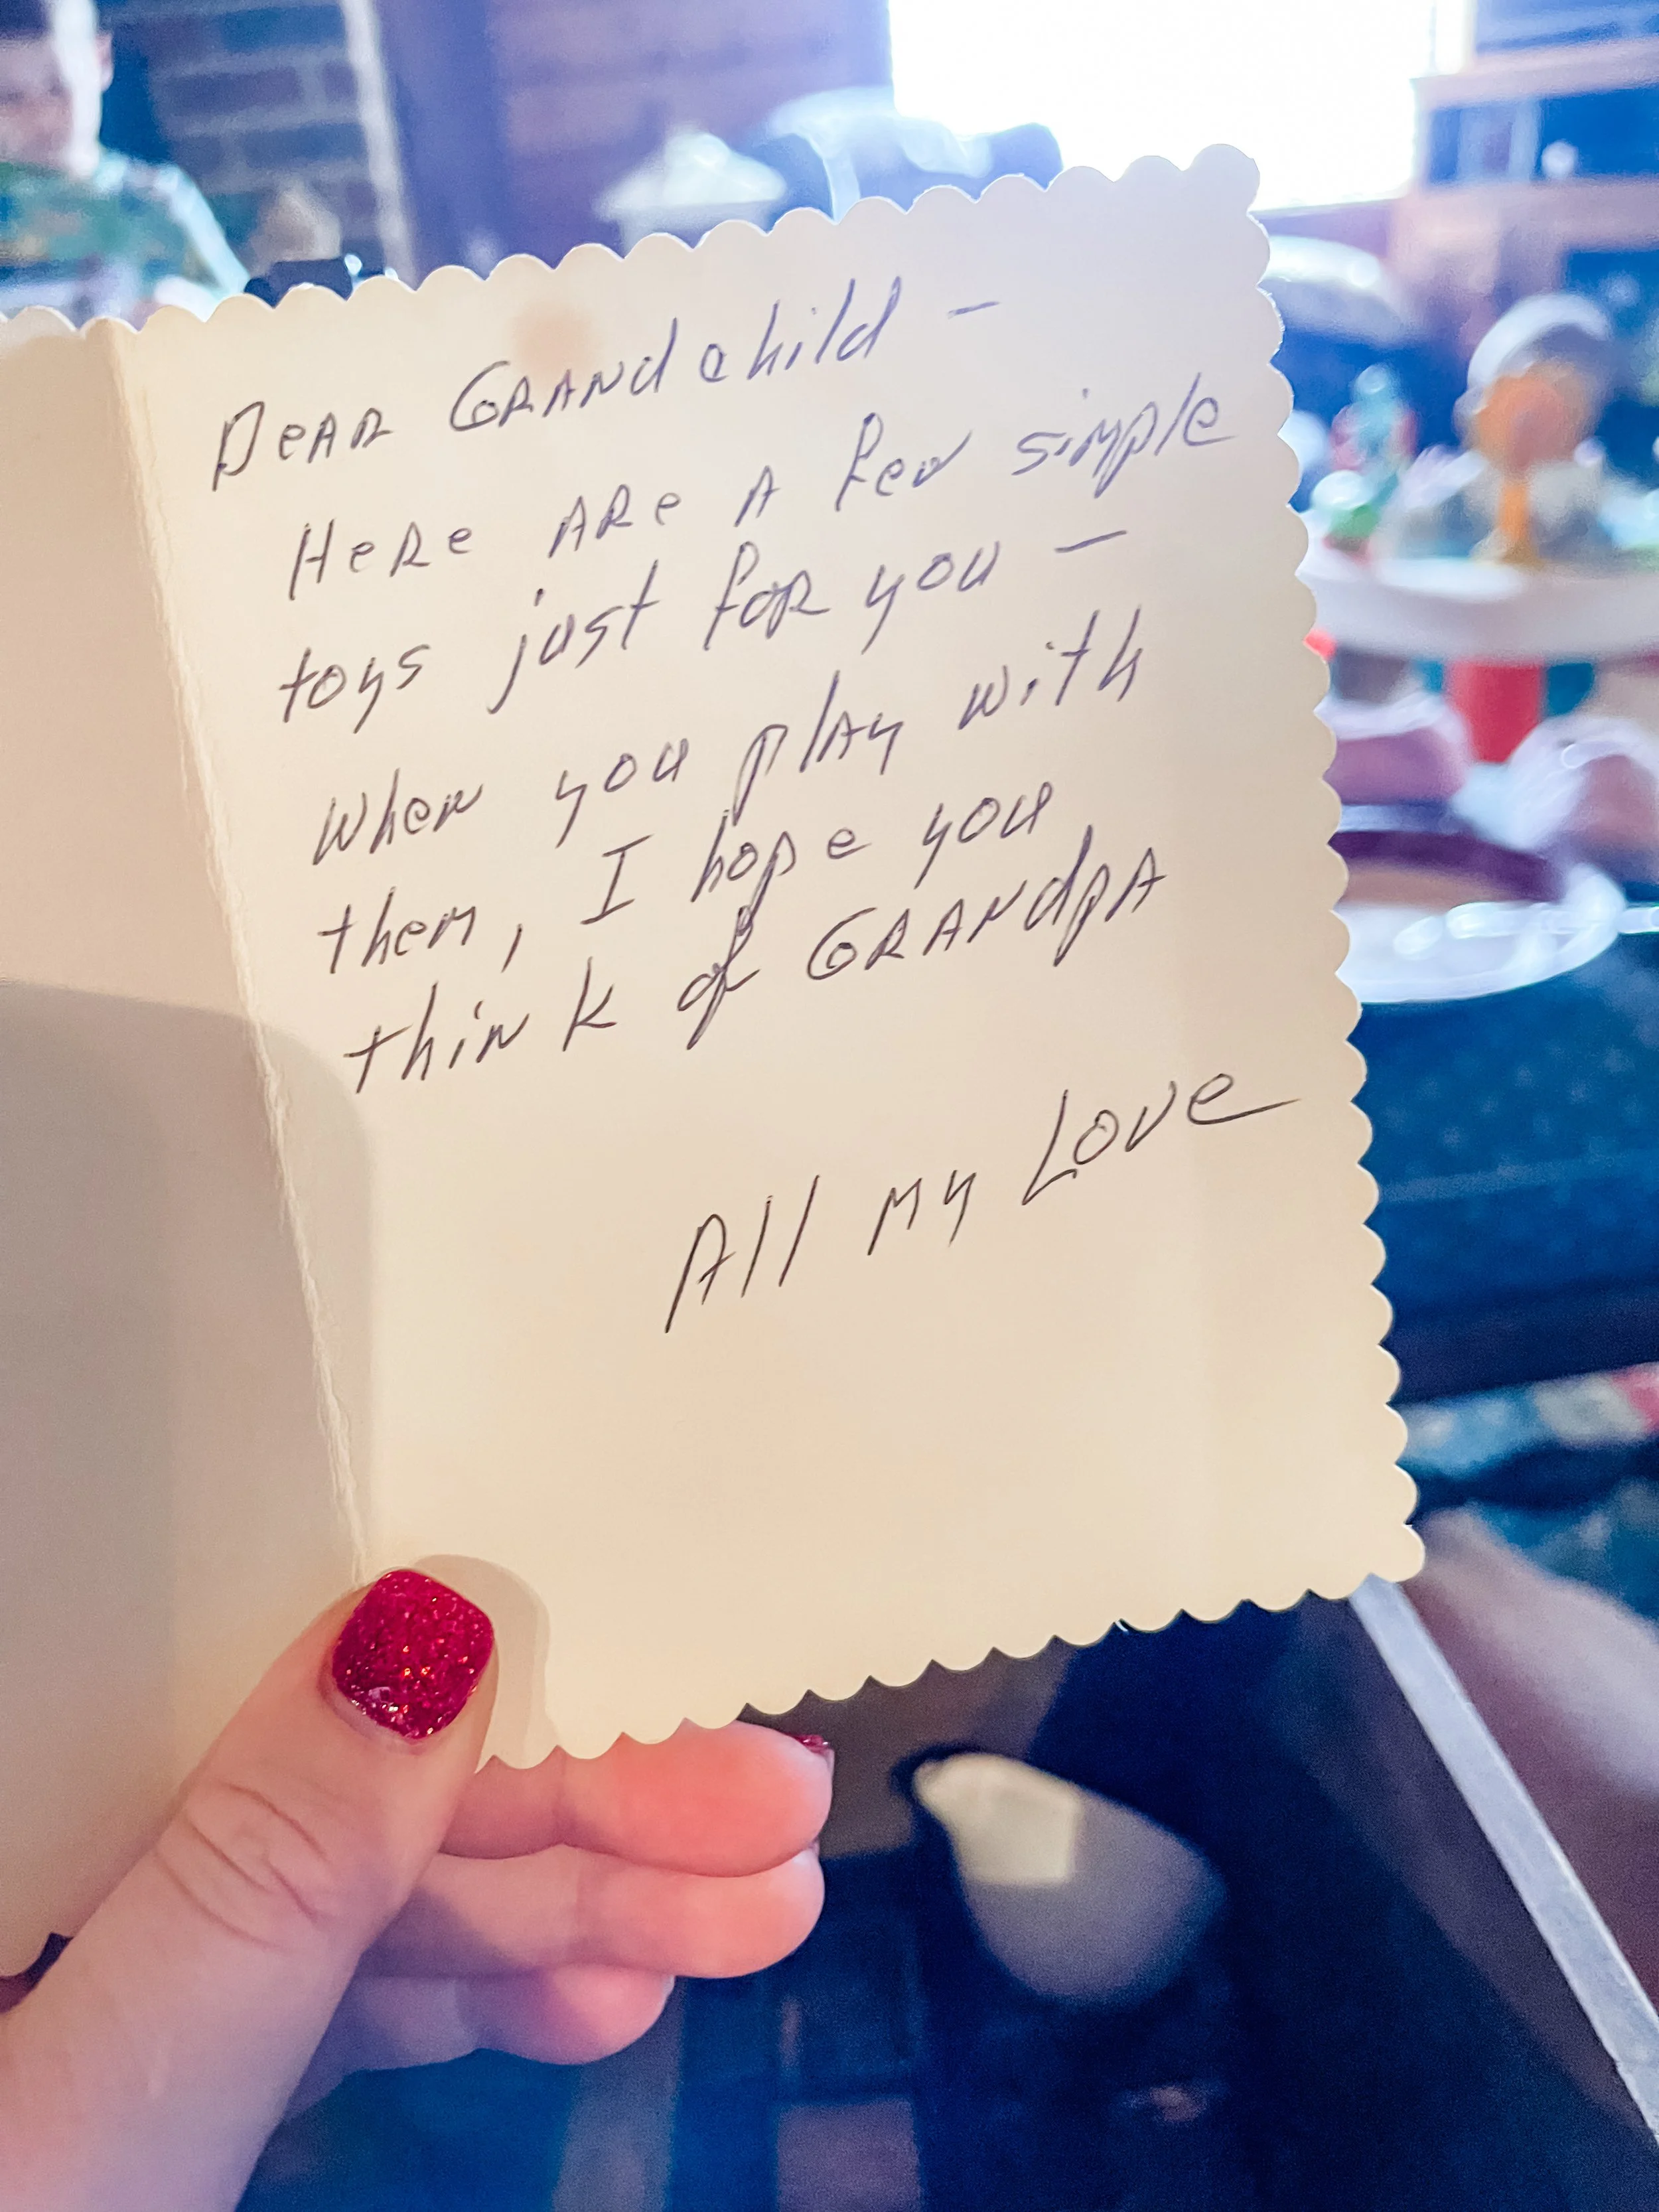 Dear Grandchild –
Here are a few simple
toys just for you –
When you play with
them, I hope you
think of Grandpa
All my Love